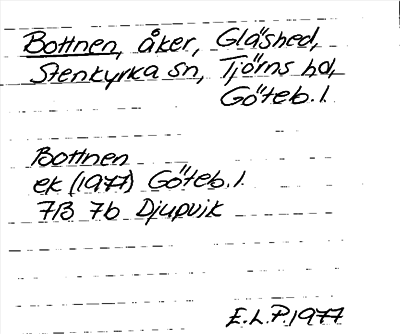 Bottnen, åker, Gläshed,
Stenkyrka sn, Tjörns hd,
Göteb. l.
Bottnen
ek (1977) Göteb. l.
7B 7b Djupvik
E.L.P. 1977